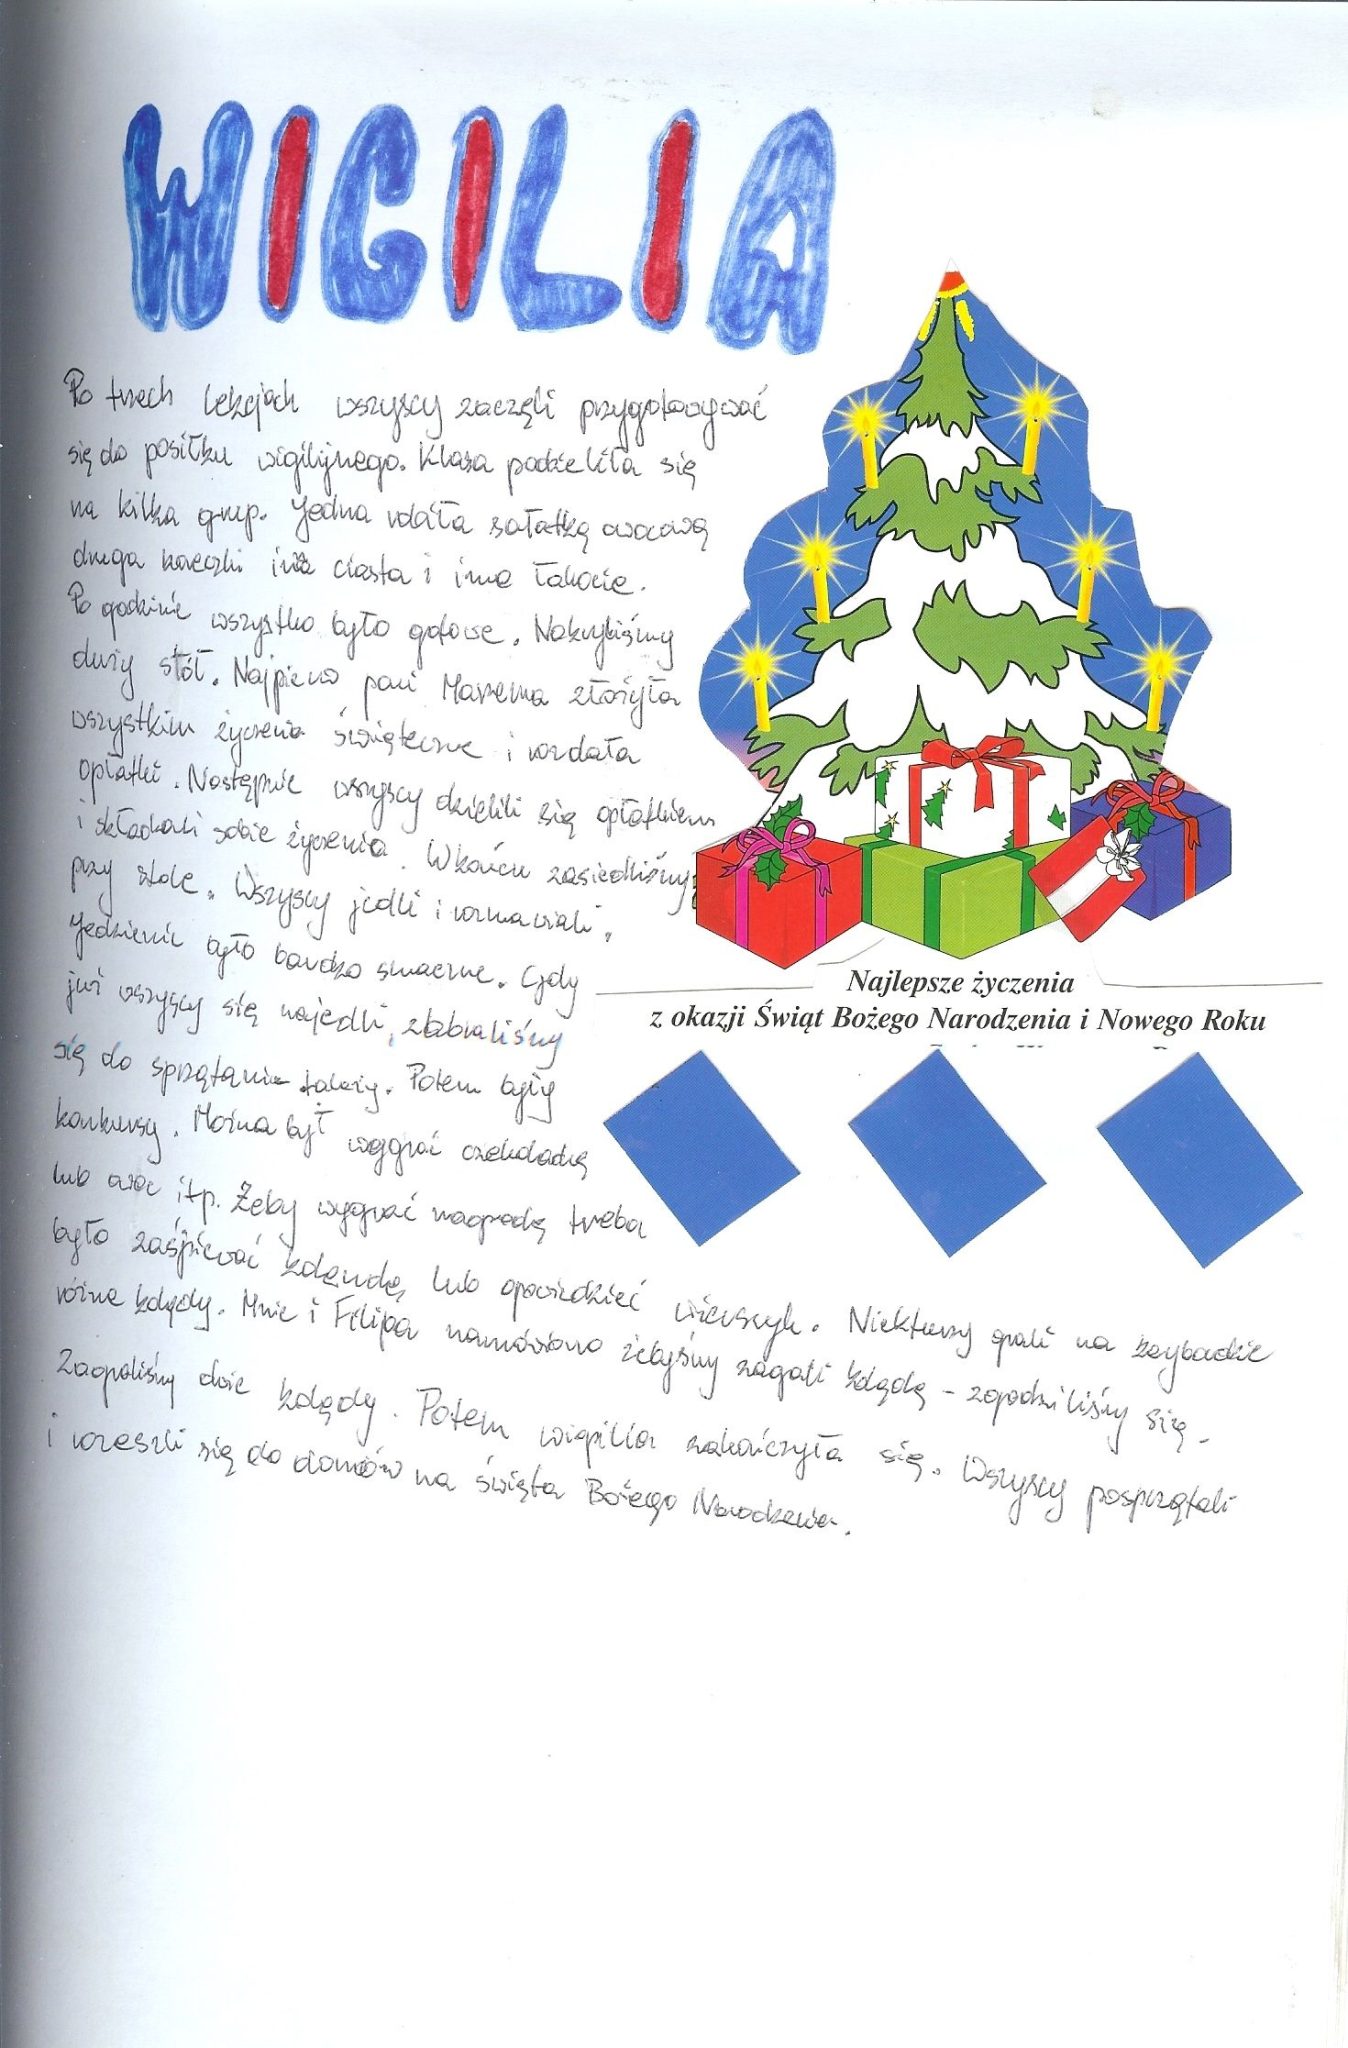 WIGILIA
Po trzech lekcjach wszyscy zaczęli przygotowywać
się do posiłku wigilijnego. Klasa podzieliła się
na kilka grup. Jedna robiła sałatkę owocową
druga koreczki inna ciasta i inne łakocie.
Po godzinie wszystko było gotowe. Nakryliśmy
duży stół. Najpierw pani Marzena złożyła
wszystkim życzenia świąteczne i rozdała
opłatki. Następnie wszyscy dzielili się opłatkiem
i składali sobie życzenia. W końcu zasiedliśmy
przy stole. Wszyscy jedli i rozmawiali.
Jedzienie było bardzo smaczne. Gdy
już wszyscy się najedli, zabraliśmy
się do sprzątania talerzy. Potem były
konkursy. Można był wygrać czekoladkę
lub owoc itp. Żeby wygrać nagrodę trzeba
było zaśpiewać kolendę, lub opowiedzieć wierszyk. Niekturzy grali na keybordzie
różne kolędy. Mnie i Filipa namówiono żebyśmy zagali kolędę – zgodziliśmy się.
Zagraliśmy dwie kolędy. Potem wigilia zakończyła się. Wszyscy posprzątali
i rozeszli się do domów na święta Bożego Narodzenia.
Najlepsze życzenia
z okazji Świąt Bożego Narodzenia i Nowego Roku